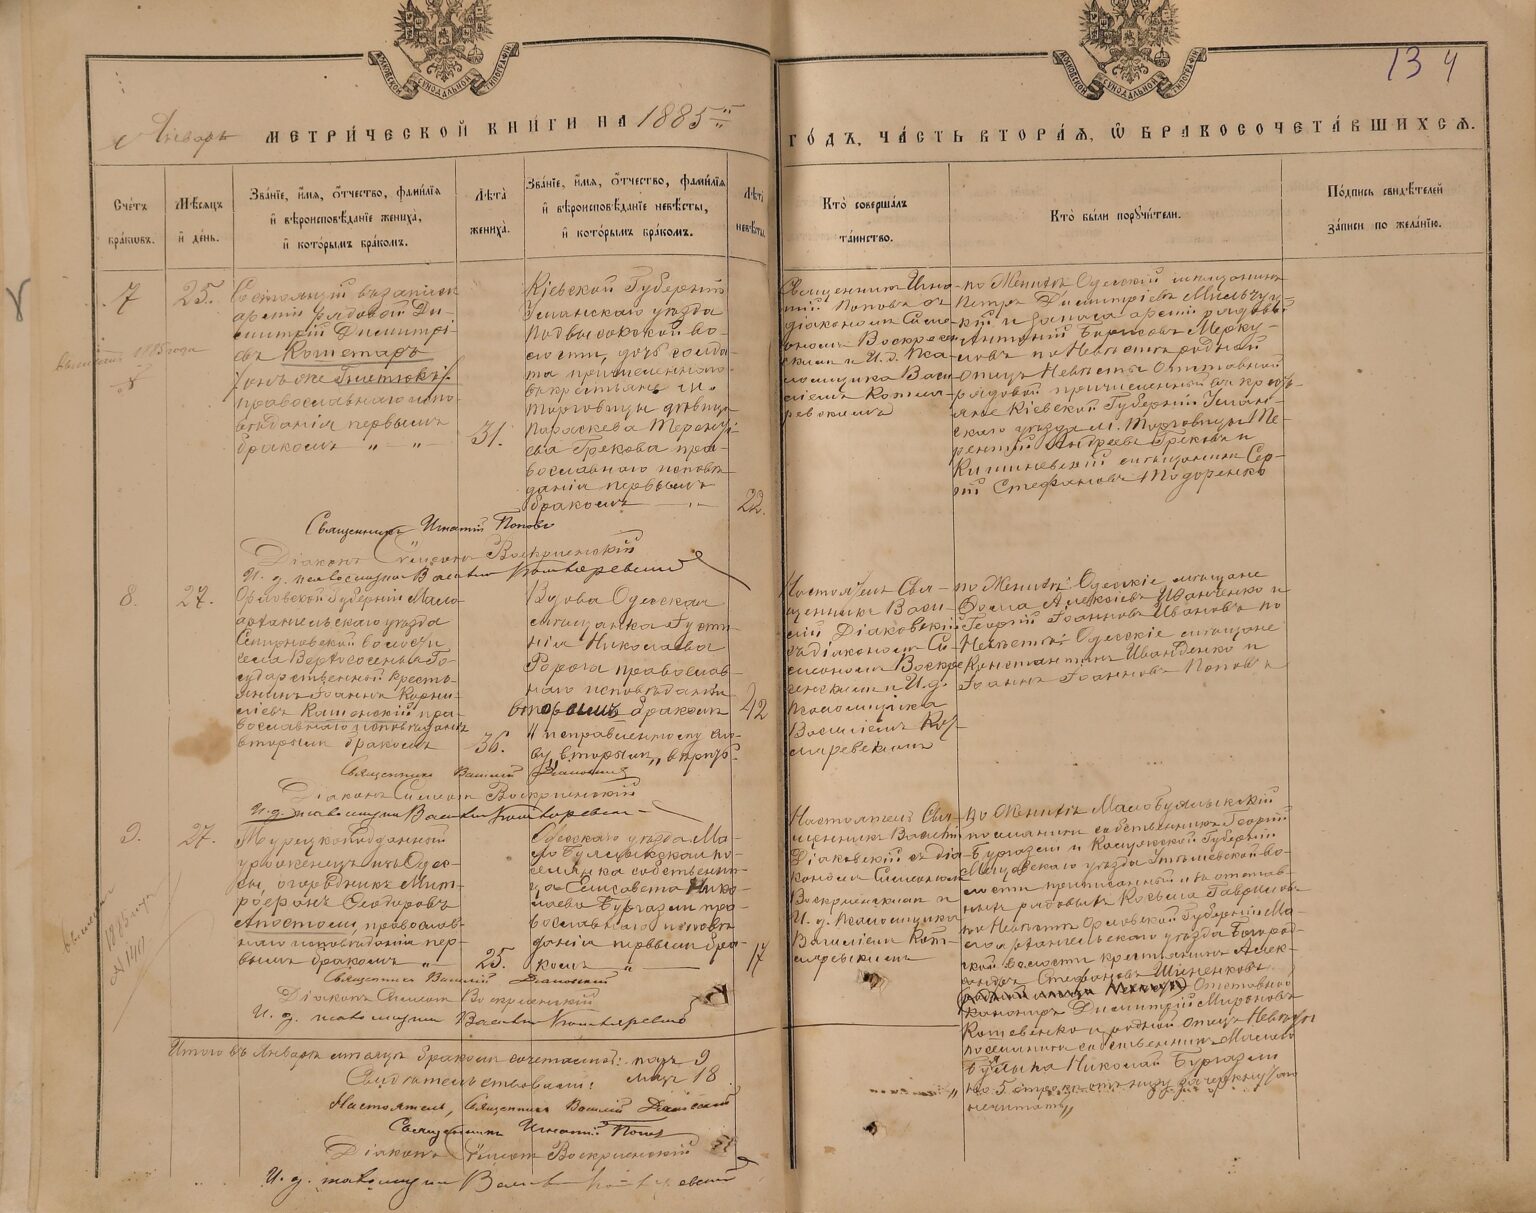 МОСКОВСКОЙ СѴНОДАЛЬНОЙ ТИПОГРАФІИ
МОСКОВСКОЙ СѴНОДАЛЬНОЙ ТИПОГРАФІИ
13 4
Январь МЕТРИ́ЧЕСКОЙ КНИ́ГИ НА 1885
ГО́ДЪ, ЧА́СТЬ ВТОРА́Я, Ѽ БРАКОСОЧЕТА́ВШИХСЯ.
Сче́тъ бра́ковъ.
Мѣ́сяцъ и҆ де́нь.
Зва́нїе, и҆́мя, ѻ҆́тчество, фами́лїя
и҆ вѣроисповѣ́данїе жениха̀,
и҆ кото́рымъ бра́комъ.
Лѣта̀ жениха̀.
Зва́нїе, и҆́мя, ѻ҆́тчество, фами́лїя
и҆ вѣроисповѣ́данїе невѣ́сты,
и҆ кото́рымъ бра́комъ.
Лѣта̀ невѣ́сты.
Кто̀ соверша́лъ
та́инство.
Кто̀ бы́ли поручи́тели.
По́дпись свидѣ́телей
за́писи по жела́нїю.
7
25.
Состоящій въ запасѣ
арміи рядовой Ди-
митрій Димитрі-
евъ Кометаръ
православнаго испо-
вѣданія первымъ
бракомъ " — " —
31.
Кіевской Губерніи
Уманскаго уѣзда
Подвысокской во-
лости, дочь солда-
та причисленнаго
въ крестьяне м.
Торговицы дѣвица
Параскева Теренті-
ева Грекова пра-
вославнаго исповѣ-
данія первымъ
бракомъ — " —
22.
Священникъ Игна-
тій Поповъ съ
діакономъ Симе-
ономъ Воскресен-
скимъ и И. д. Пса-
ломщика Васи-
ліемъ Котля-
ревскимъ
по Женихѣ Одесскій мѣщанинъ
Петръ Димитріевъ Мильчуц-
кій и запаса арміи рядовый
Антоній Борисовъ Мерку-
ловъ по Невѣстѣ родной
отецъ Невѣсты Отставной
рядовой причисленный въ кресть-
яне Кіевской Губерніи Уман-
скаго уѣзда м. Торговицы Те-
рентій Андреевъ Грековъ и
Кишиневскій мѣщанинъ Сер-
гій Стефановъ Тодоренко
Священникъ Игнатій Поповъ
Діаконъ Симеонъ Воскресенскій
И. д. псаломщика Василій Котляревскій
8.
27.
Орловской Губерніи Мало-
архангельскаго уѣзда
Смирновской волости
села Верхососенья Го-
сударственный кресть-
янинъ Іоаннъ Корни-
ліевъ Кашонскій пра-
вославнаго исповѣданія
вторымъ бракомъ
36.
Вдова Одесская
мѣщанка Іусти-
нія Николаева
Ророга православ-
наго исповѣданія
вторымъ бракомъ
42
Священникъ Василій Діаковскій
Діаконъ Симеонъ Воскресенскій
И. д. псаломщика Василій Котляревскій
Настоятель Свя-
щенникъ Васи-
лій Діаковскій
съ діакономъ Си-
меономъ Воскре-
сенскимъ и И. д.
Псаломщика
Василіемъ Кот-
ляревскимъ
по Женихѣ: Одесскіе мѣщане
Ѳома Алексіевъ Иванченко и
Георгій Іоанновъ Ивановъ по
Невѣстѣ: Одесскіе мѣщане
Константинъ Иванденко и
Іоаннъ Іоанновъ Поповъ
9.
27.
Турецкоподданный
уроженецъ изъ Одес-
сы, огородникъ Мит-
рофанъ Ѳеодоровъ
Апостоли, православ-
наго исповѣданія пер-
вымъ бракомъ "
25.
Одесскаго уѣзда Ма-
ло Буялыкская по-
селянка собственни-
ца Елисавета Нико-
лаева Бургазли пра-
вославнаго исповѣ-
данія первымъ бра-
комъ " —
17
Настоятель Свя-
щенникъ Василій
Діаковскій съ діа-
кономъ Симеономъ
Воскресенскимъ и
И. д. Псаломщика
Василіемъ Кот-
ляревскимъ
по Женихѣ Малобуялыкскій
поселянинъ собственникъ Георгій
Бургазли и Калужской Губерніи
волости приписанный изъ отстав-
ныхъ рядовыхъ Косьма Гавриловъ
по Невѣстѣ Орловской Губерніи Ма-
лоархангельскаго уѣзда Богород-
ской волости крестьянинъ Алек-
сандръ Стефановъ Шиненковъ
Отставной
канониръ Димитрій Мироновъ
Кошевенко и родной отецъ Невѣсты
поселянинъ собственникъ Мало
Буялыка Николай Бургазли
не читать"
Священникъ Василій Діаковскій
Діаконъ Симеонъ Воскресенскій
И. д. псаломщика Василій Котляревскій
Итого въ Январѣ мѣсяцѣ бракомъ сочетаній: паръ 9
лицъ 18
Свидѣтельствовали:
Настоятель, Священникъ Василій Діаковскій
Священникъ Игнатій Поповъ
Діаконъ Симеонъ Воскресенскій
И. д. псаломщика Василій Котляревскій